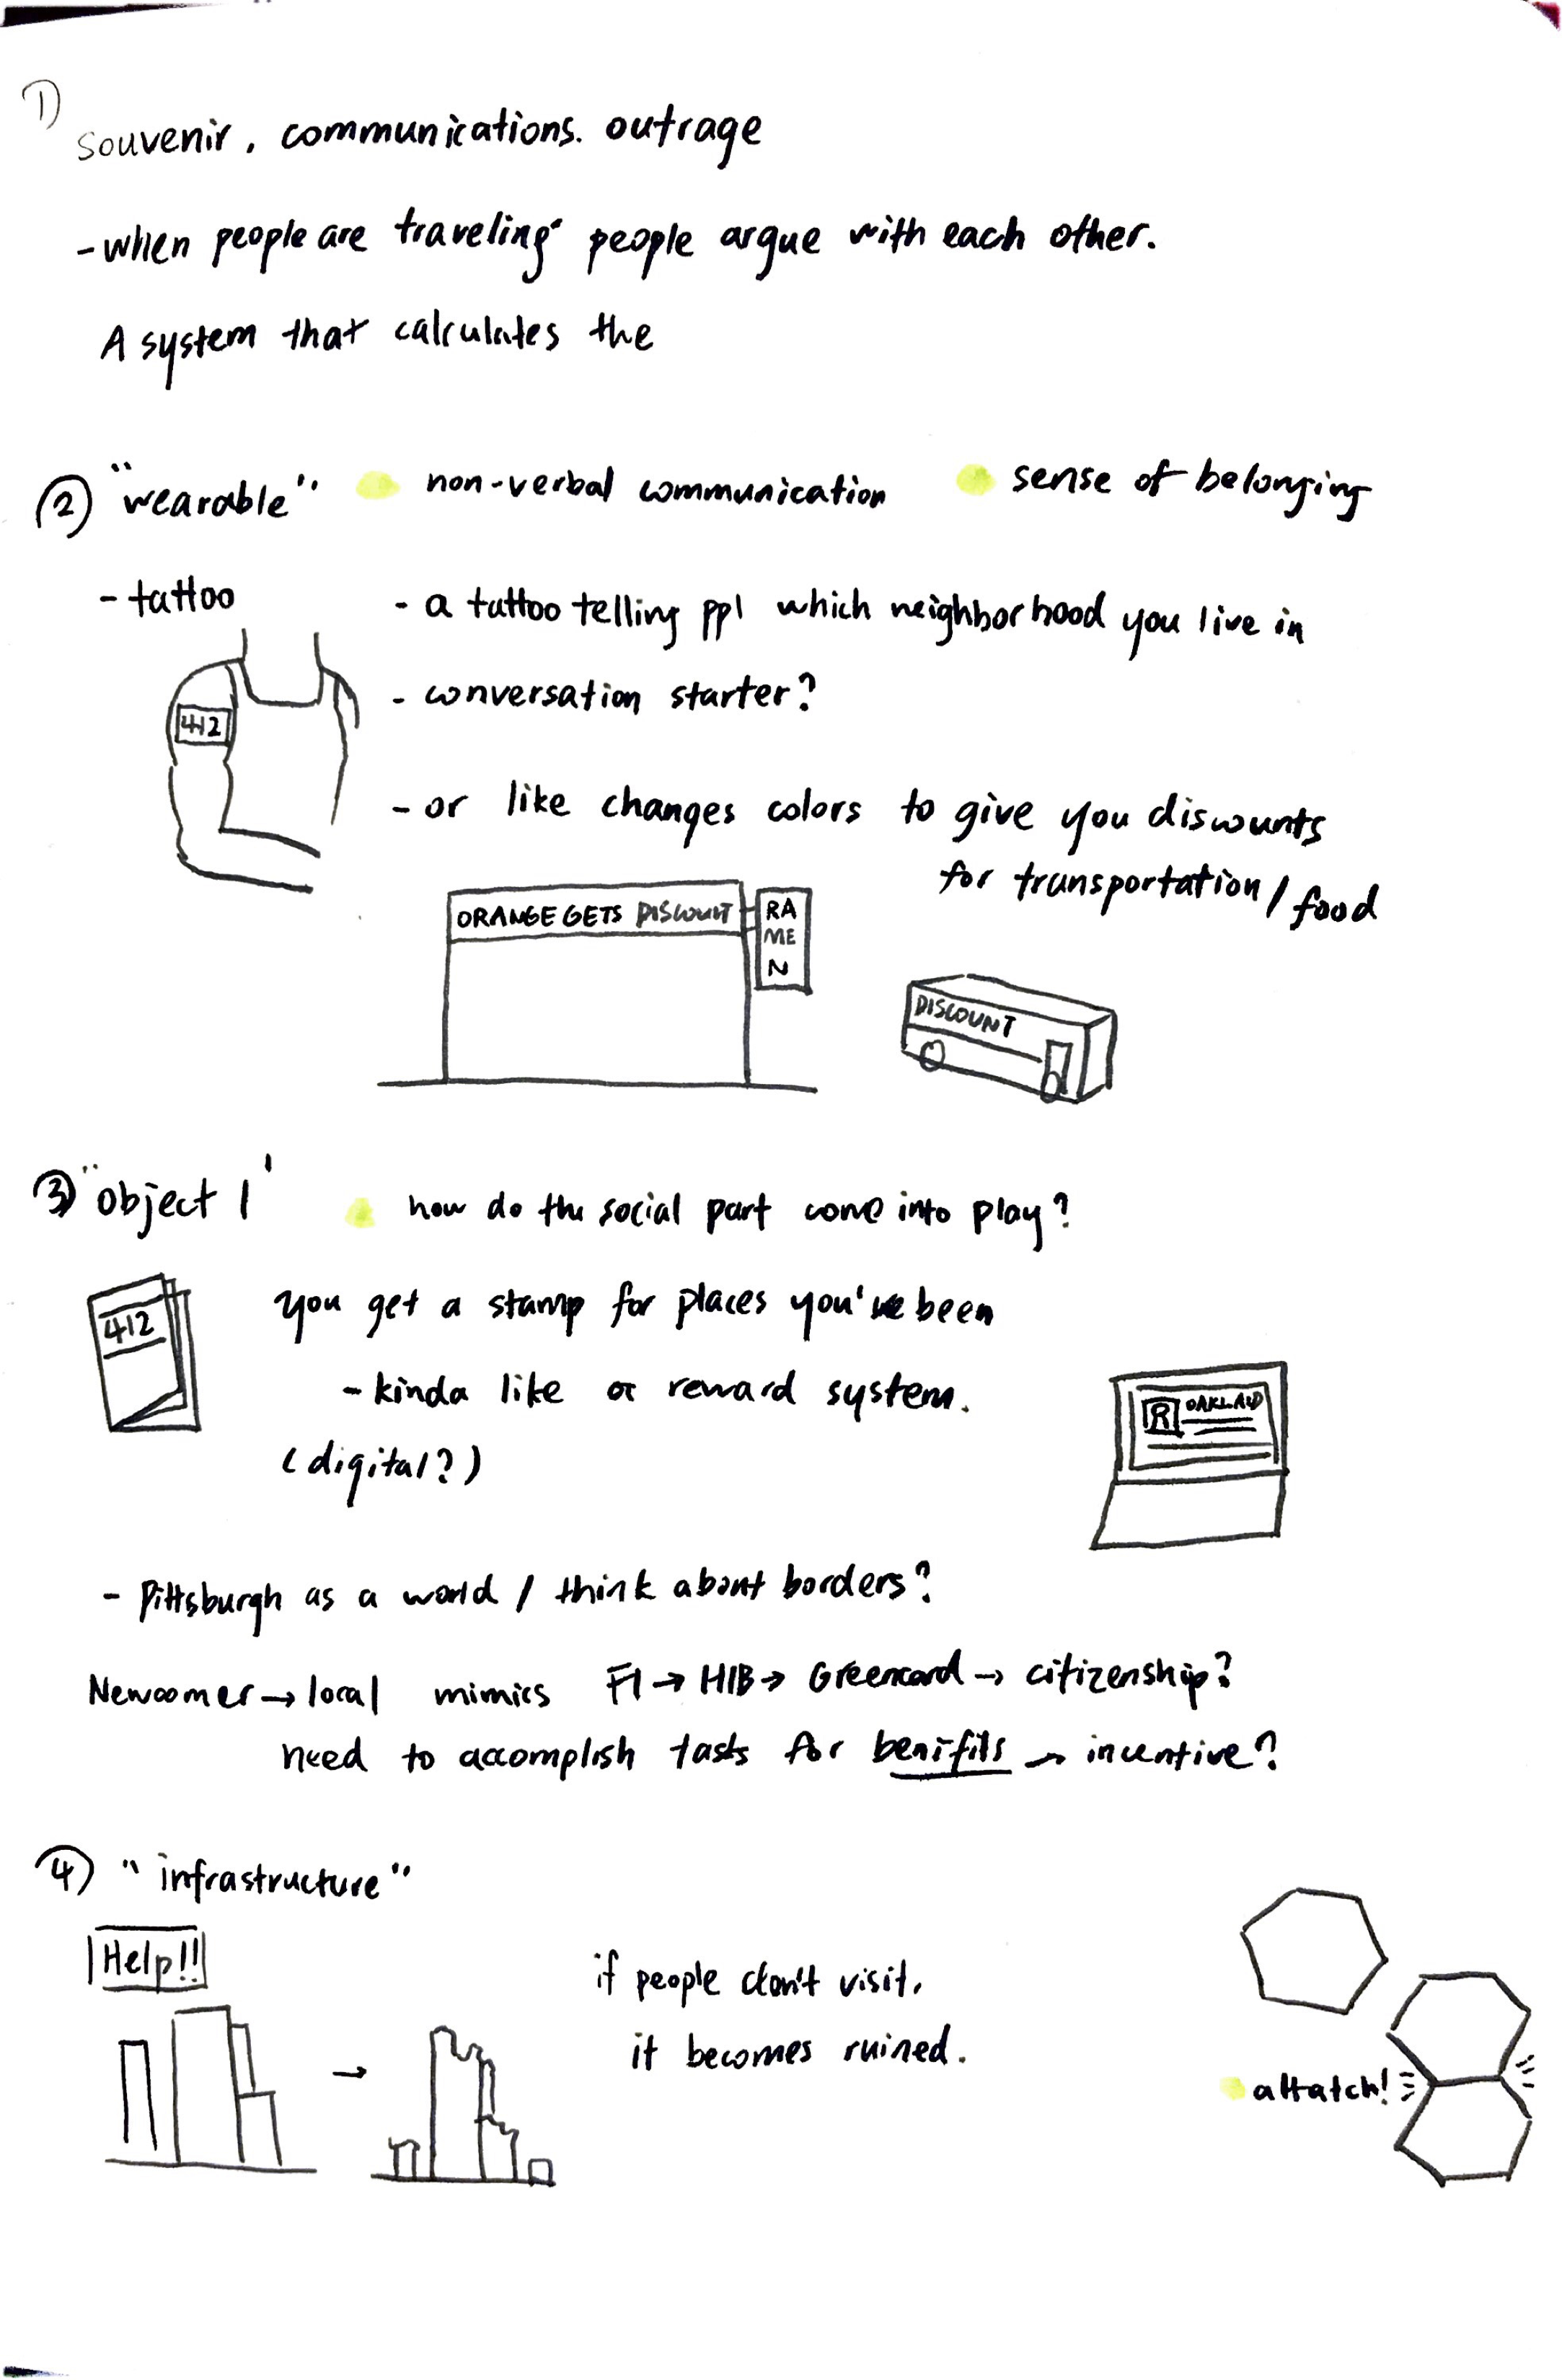 1)
souvenir, communications. outrage
- when people are traveling people argue with each other.
A system that calculates the
② "wearable" non-verbal communication sense of belonging
- tattoo
- a tattoo telling ppl which neighborhood you live in
- conversation starter?
412
- or like changes colors to give you discounts
for transportation / food
ORANGE GETS DISCOUNT
RA
ME
N
DISCOUNT
③ "object 1" how do the social part come into play?
412
you get a stamp for places you've been
- kinda like a reward system.
(digital?)
R OAKLAND
- Pittsburgh as a world / think about borders?
Newcomer → local mimics F1 → H1B → Greencard → citizenship?
need to accomplish tasks for benifits → incentive?
④ "infrastructure"
Help!!
→
if people don't visit,
it becomes ruined.
attatch!